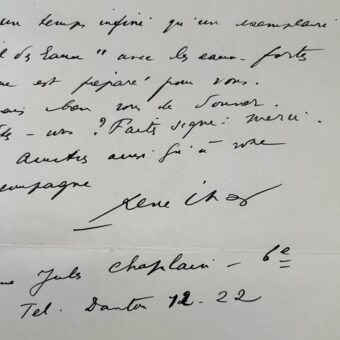 un temps infini qu'un exemplaire
il des Eaux" avec les eaux-fortes
ue est préparé pour vous.
ais bon vous le donner.
- vous ? Faites signe. Merci.
Amitiés ainsi qu'à votre
compagne
René Char
ue Jules Chaplain - 6e
Tel. Danton 12-22